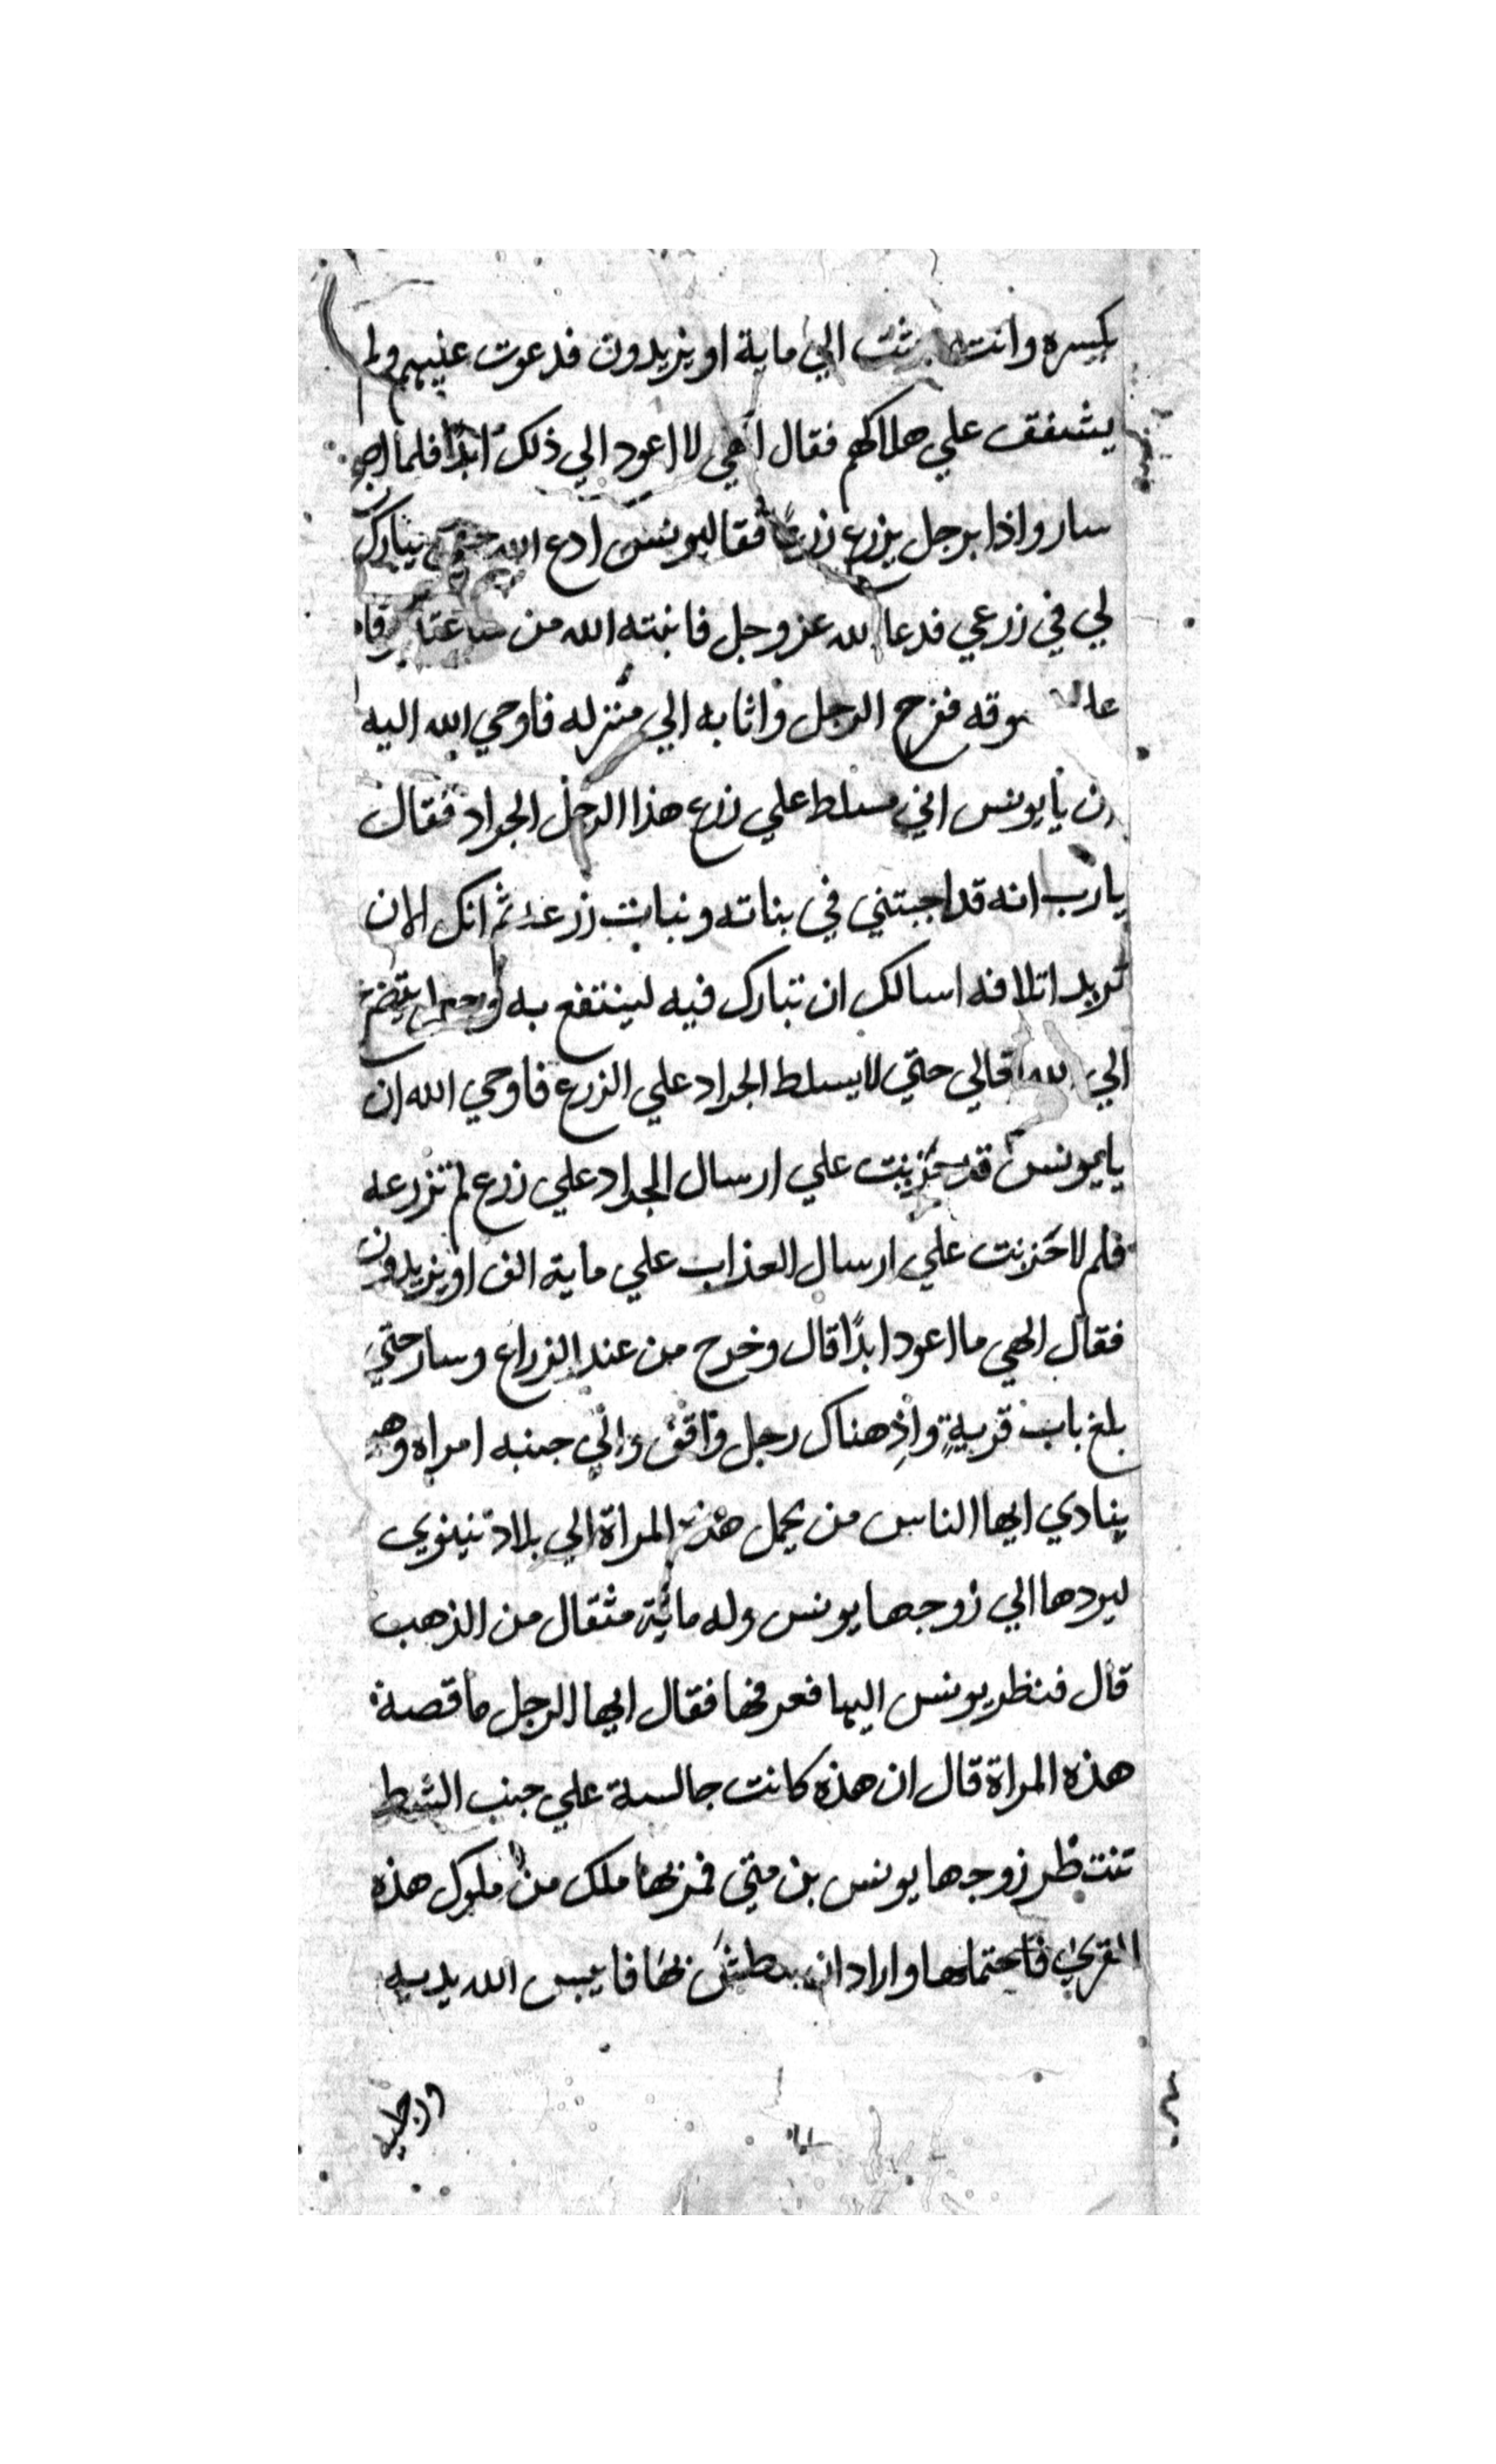 بكسره وانت بعثت الي ماية او يزيدون فدعوت عنيهم ولم
يشفق علي هلاكهم فقال الهي لا اعود الي ذلك ابدًا فلما اصبح
سار واذا برجل يزرع زرعًا فقال يونس ادع الله حتي يبارك
لي في زرعي فدعا الله عز وجل فانبته الله من ساعته وقام
علي سوقه ففرح الرجل واتا به الي منزله فاوحي الله اليه
ان يا يونس اني مسلط علي زرع هذا الرجل الجراد فقال
يارب انه قد اجبتني في بناته ونبات زرعه ثم انك الان
تريد اتلافه اسالك ان تبارك فيه لينتفع به يتضرع
الي الله تعالي حتي لا يسلط الجراد علي الزرع فاوحي الله ان
يايونس قد حزنت علي ارسال الجراد علي زرع لم تزرعه
فلم لا حَزنت علي ارسال العذاب علي ماية الف او يزيدون
فقال الهي ما اعود ابدًا قال وخرج من عند الزراع وسار حتي
بلغ باب قريةٍ واذِ هناك رجل واقف والي جنبه امراه وهو
ينادي ايها الناس من يحمل هذه المراة الي بلاد نينوي
ليردها الي زوجها يونس وله مائية مثقال من الذهب
قال فنظر يونس اليها فعرفها فقال ايها الرجل ما قصة
هذه المراة قال ان هذه كانت جالسة علي جنب الشط
تنتظر زوجها يونس بن متي فمر بها ملك من ملوك هذه
القري فاحتملها واراد ان يبطش بها فايبس الله يديه
ورجليه